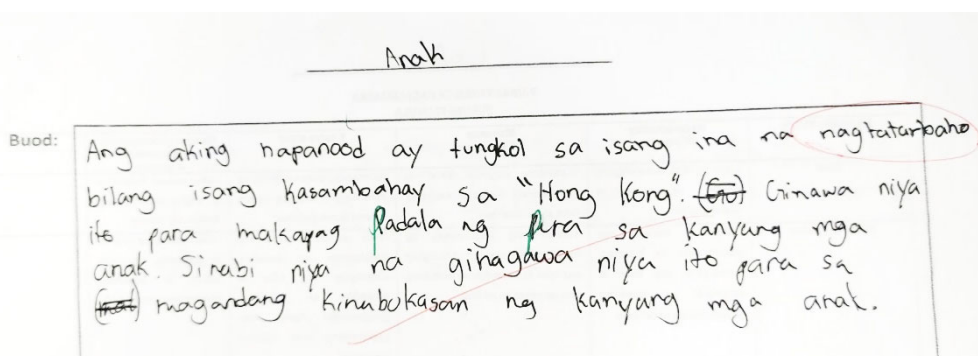 Anak
Buod:
Ang aking napanood ay tungkol sa isang ina na nagtatarbaho
bilang isang kasambahay sa "Hong Kong". Ginawa niya
ito para makapag padala ng pera sa kanyang mga
anak. Sinabi niya na ginagawa niya ito para sa
magandang kinabukasan ng kanyang mga anak.